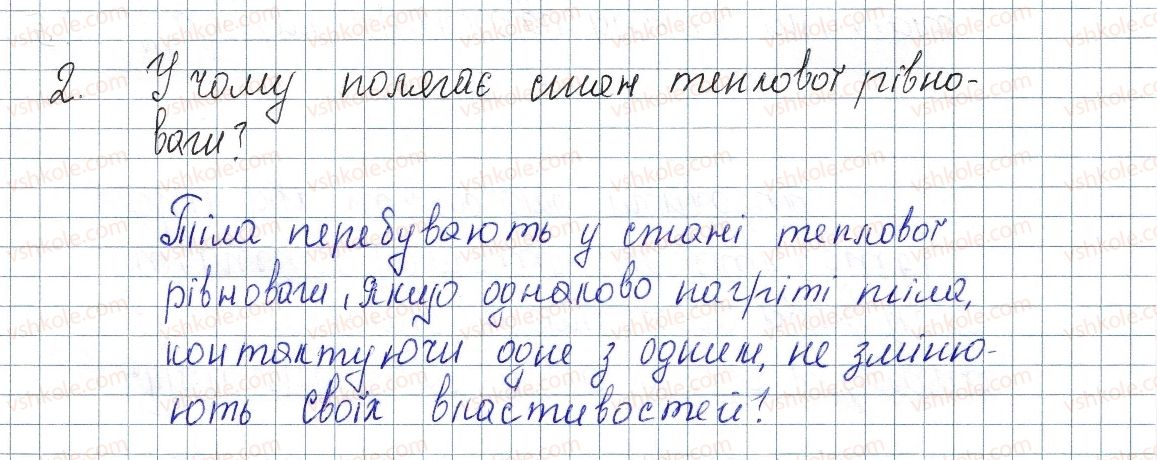 2. У чому полягає стан теплової рівно-
ваги?
Тіла перебувають у стані теплової
рівноваги, якщо однаково нагріті тіла,
контактуючи одне з одним, не зміню-
ють своїх властивостей!